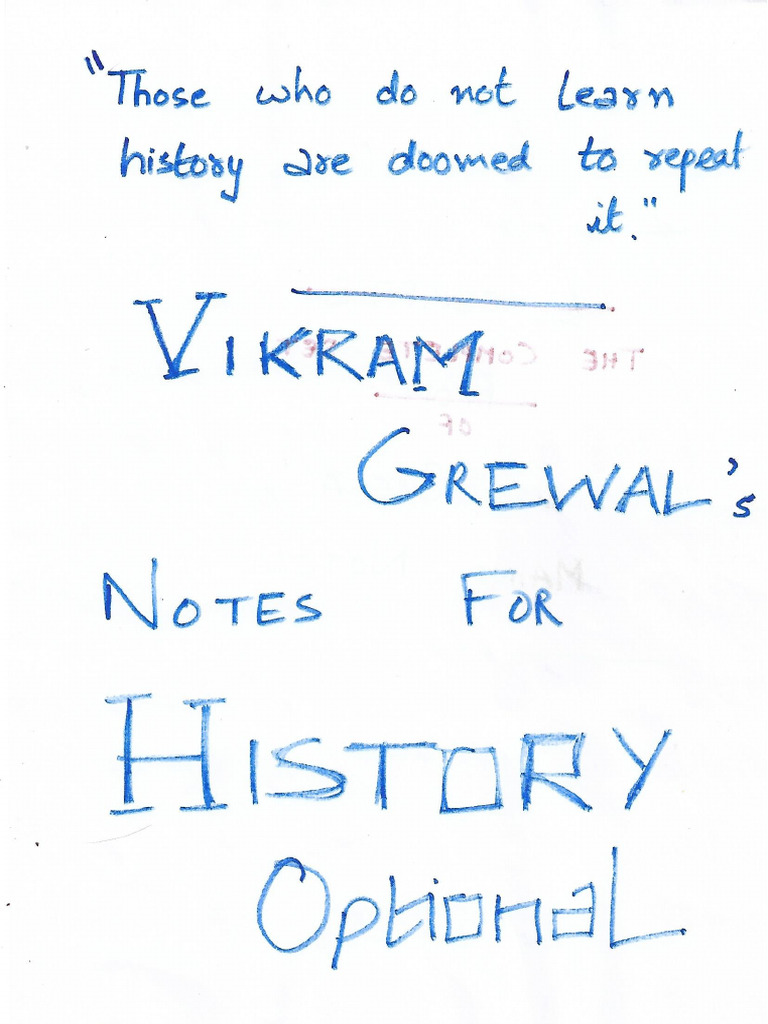 "Those who do not learn
history are doomed to repeat
it."
VIKRAM
GREWAL's
NOTES FOR
HISTORY
OptionaL